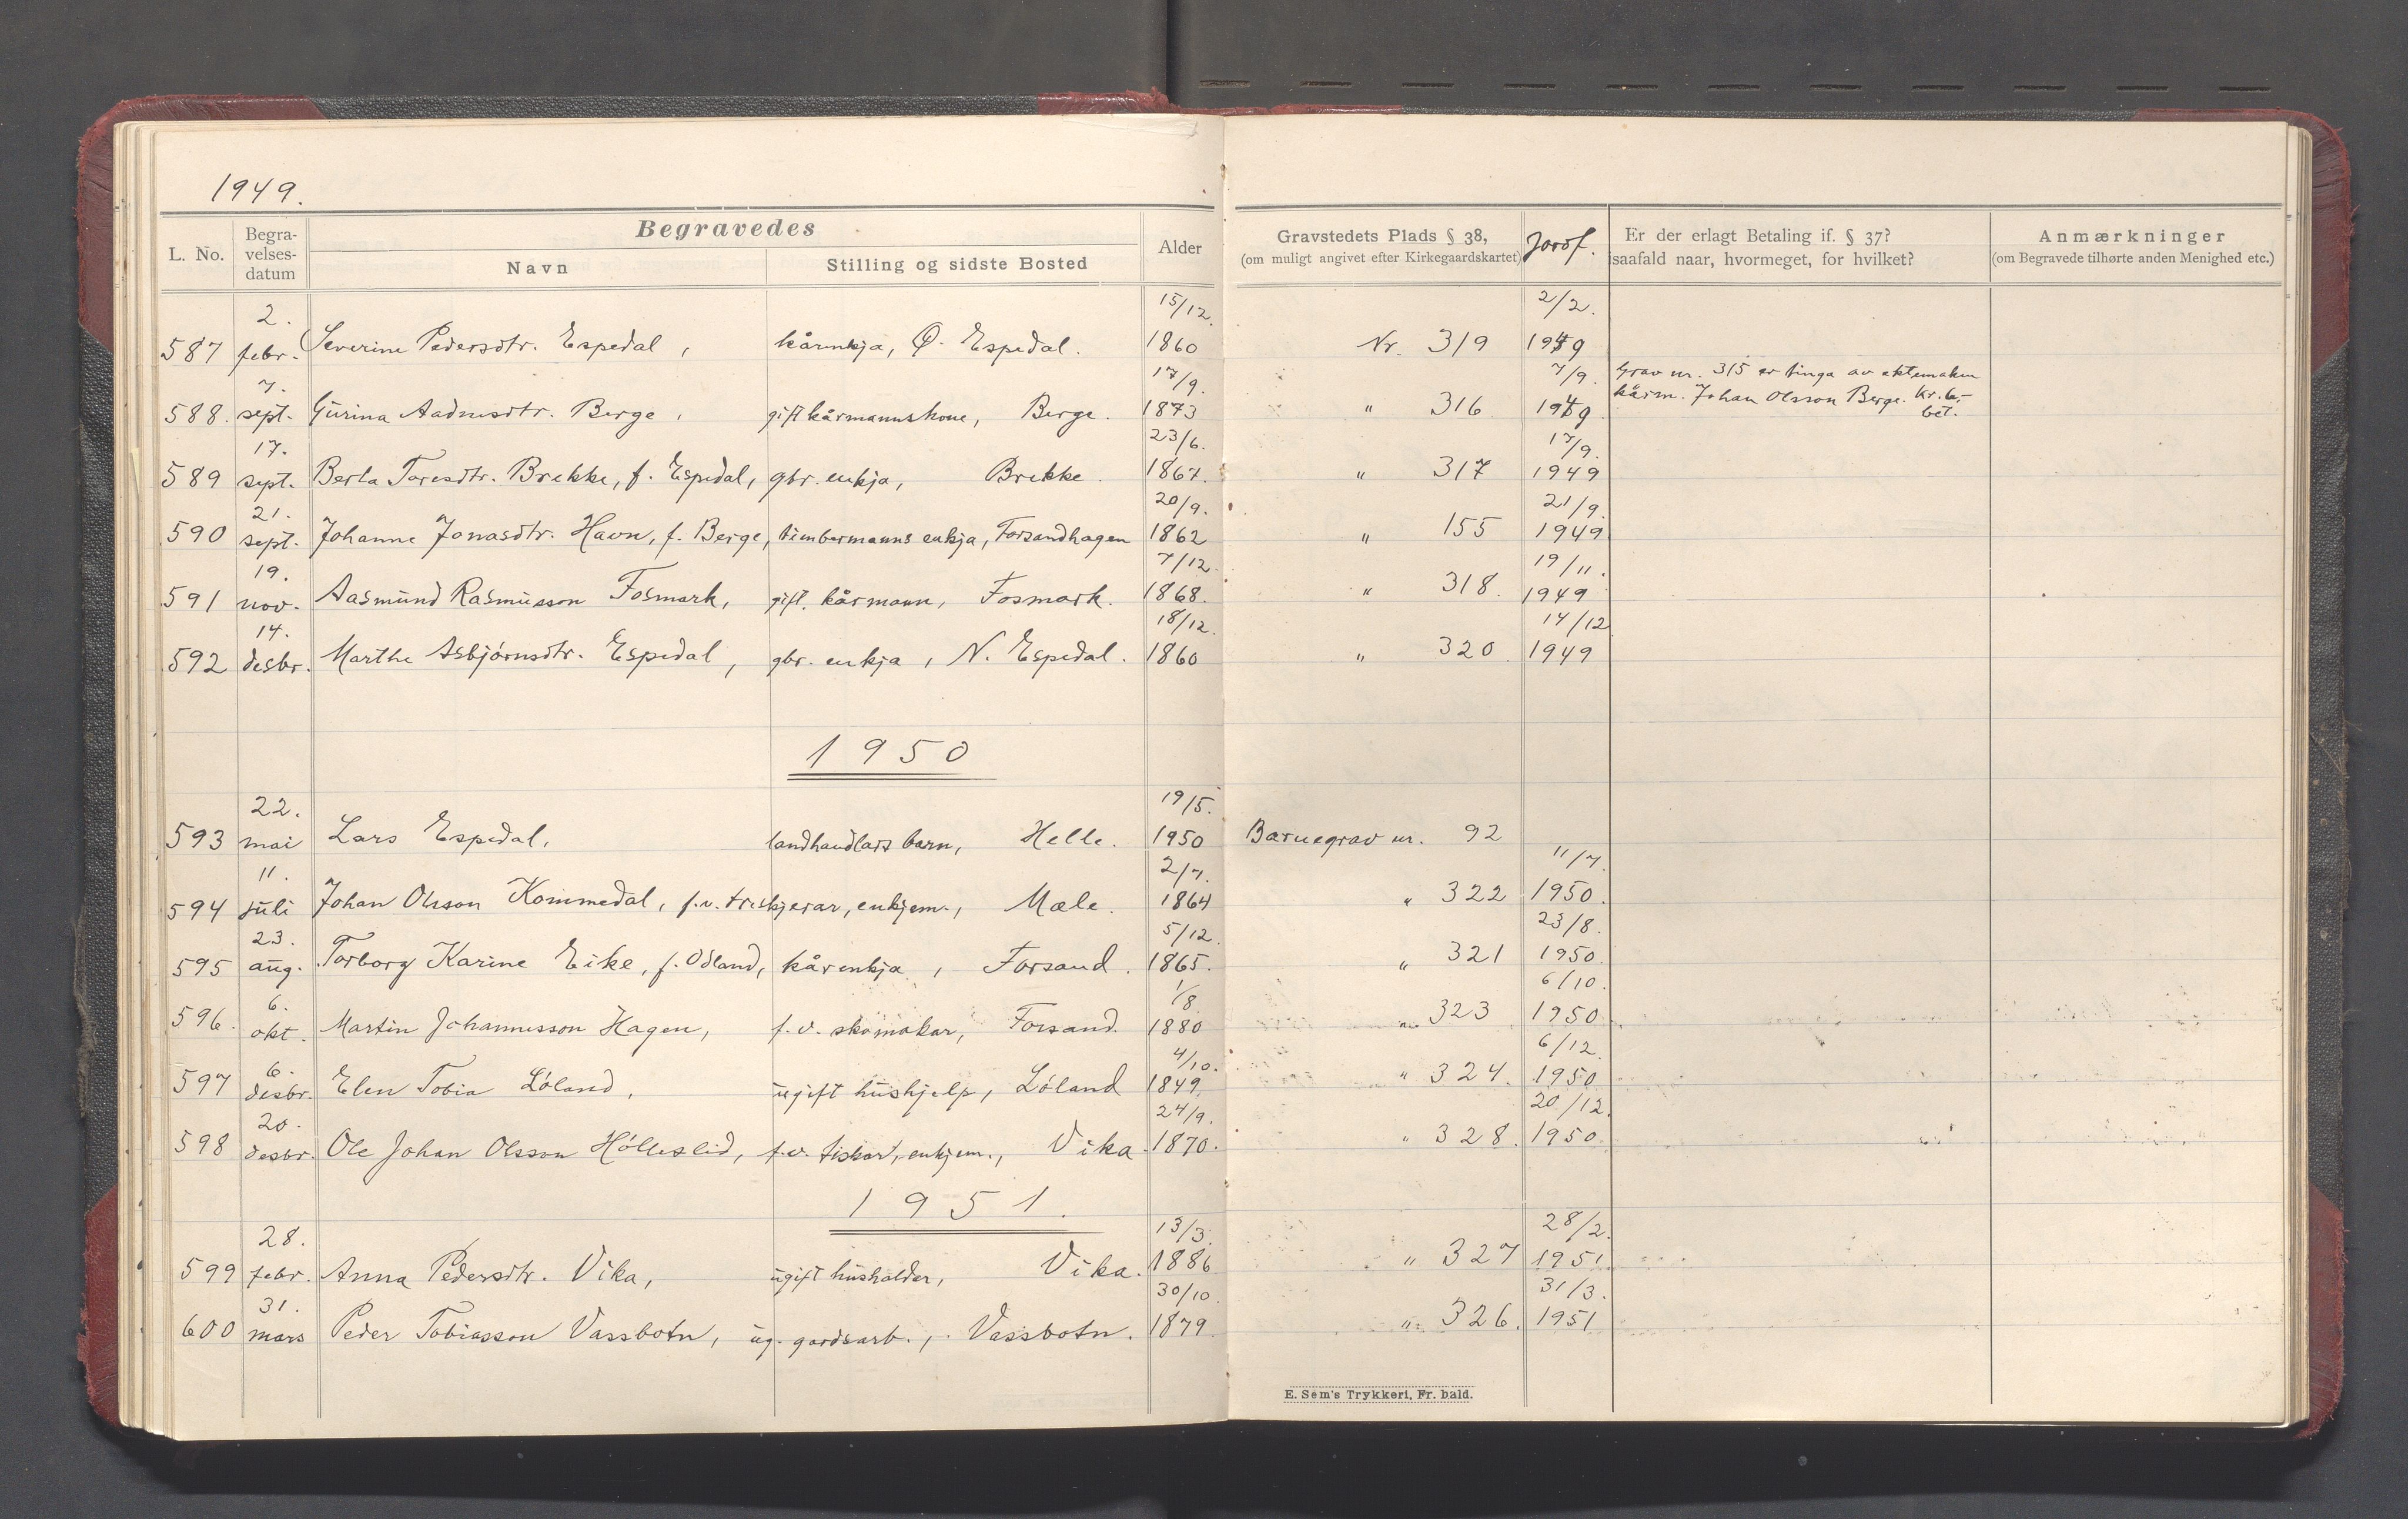 1949.
L. No. Begravelses-datum Begravedes Alder Gravstedets Plads § 38, Jordf. Er der erlagt Betaling if. § 37? Anmærkninger
Navn Stilling og sidste Bosted (om muligt angivet efter Kirkegaardskartet) isaafald naar, hvormeget, for hvilket? (om Begravede tilhørte anden Menighed etc.)
2. 15/12. 2/2.
587 febr. Severine Pedersdtr. Espedal, kårenkja, Ø. Espedal. 1860 Nr. 319 1949
7. 17/9. 7/9. Grav nr. 315 er tinga av ektemaken
588. sept. Gurina Aadnesdtr. Berge, gift kårmannskone, Berge. 1873 " 316 1949 kårm. Johan Olsson Berge. Kr. 6,- bet.
17. 23/6. 17/9.
589 sept. Berta Toresdtr. Brekke, f. Espedal, gbr. enkja, Brekke. 1867. " 317 1949
21. 20/9. 21/9.
590 sept. Johanne Jonasdtr. Havn, f. Berge, timbermanns enkja, Forsandhagen 1862 " 155 1949
19. 7/12. 19/11.
591 nov. Aasmund Rasmusson Fosmark, gift. kårmann, Fosmark. 1868. " 318. 1949
14. 18/12. 14/12
592 desbr. Marthe Asbjørnsdtr. Espedal, gbr. enkja, N. Espedal. 1860 " 320. 1949
1950
22. 19/5.
593 mai Lars Espedal, landhandlars barn, Helle. 1950 Barnegrav nr. 92
11. 2/7. 11/7
594 juli Johan Olsson Kommedal, f.v. treskjerar, enkjem., Mæle. 1864 " 322 1950.
23. 5/12. 23/8.
595 aug. Torborg Karine Eike, f. Odland, kårenkja, Forsand. 1865. " 321 1950.
6. 1/8 6/10.
596. okt. Martin Johannesson Hagen, f.v. skomakar, Forsand. 1880 " 323 1950
6. 4/10. 6/12.
597 desbr. Elen Tobia Løland, ugift hushjelp, Løland 1849. " 324. 1950
20. 24/9. 20/12.
598 desbr. Ole Johan Olsson Hølleslid, f.v. fiskar, enkjem., Vika 1870. " 328. 1950
1951.
28. 13/3. 28/2.
599 febr. Anna Pedersdtr. Vika, ugift husholder, Vika. 1886 " 327 1951
31. 30/10. 31/3.
600 mars Peder Tobiasson Vassbotn, ug. gardsarb., Vassbotn. 1879. " 326. 1951
E. Sem's Trykkeri, Fr. bald.